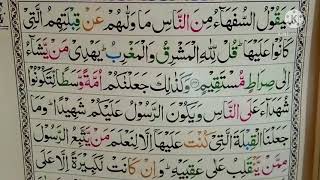 سَيَقُولُ السُّفَهَآءُ مِنَ النَّاسِ مَا وَلّٰىهُمْ عَنْ قِبْلَتِهِمُ الَّتِىْ
كَانُوْا عَلَيْهَا ؕ قُلْ لِّلّٰهِ الْمَشْرِقُ وَالْمَغْرِبُ ؕ يَهْدِىْ مَنْ يَّشَآءُ
اِلٰى صِرَاطٍ مُّسْتَقِيْمٍ وَكَذٰلِكَ جَعَلْنٰكُمْ اُمَّةً وَّسَطًا لِّتَكُوْنُوْا
شُهَدَآءَ عَلَى النَّاسِ وَيَكُوْنَ الرَّسُوْلُ عَلَيْكُمْ شَهِيْدًا ؕ وَمَا
جَعَلْنَا الْقِبْلَةَ الَّتِىْ كُنْتَ عَلَيْهَآ اِلَّا لِنَعْلَمَ مَنْ يَّتَّبِعُ الرَّسُوْلَ
مِمَّنْ يَّنْقَلِبُ عَلٰى عَقِبَيْهِ ؕ وَاِنْ كَانَتْ لَكَبِيْرَةً اِلَّا عَلَى